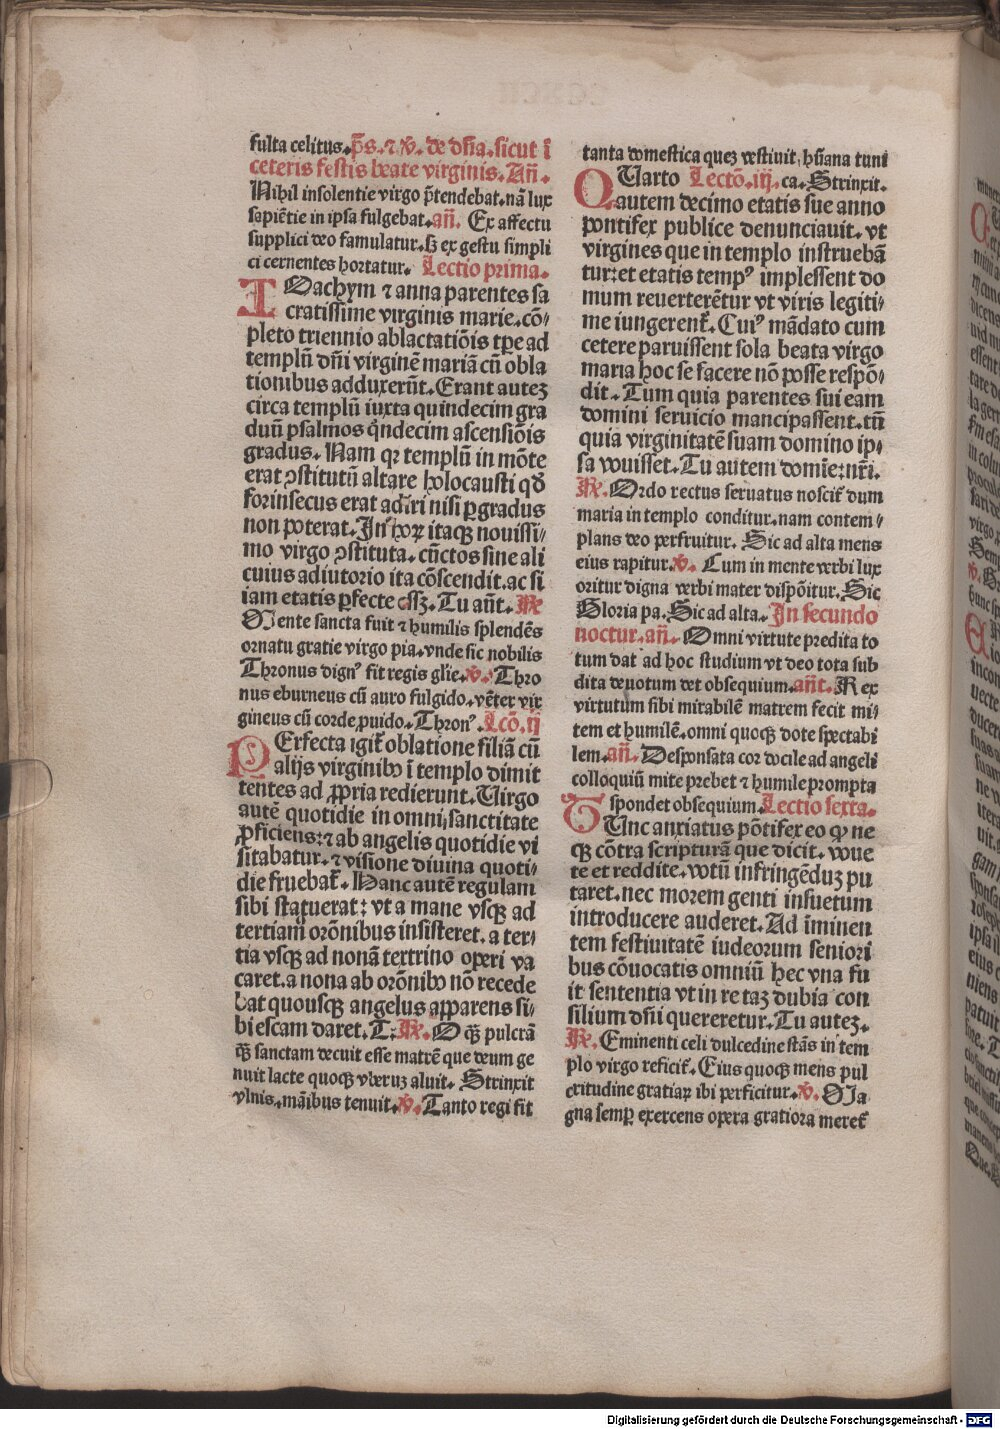 fulta celitus. p̄s. ⁊ v̄. de dn̄a. sicut ī
ceteris festis beate virginis. An̄.
Nihil insolentie virgo p̄tendebat. nā lux
sapiētie in ipsa fulgebat. an̄. Ex affectu
supplici deo famulatur. s̄ ex gestu simpli
ci cernentes hortatur. Lectio prima.
IOachym ⁊ anna parentes sa
cratissime virginis marie. cō/
pleto triennio ablactatiōis tp̄e ad
templū dn̄i virginē mariā cū obla
tionibus adduxerūt. Erant autez
circa templū iuxta quindecim gra
duū psalmos q̄ndecim ascensiōis
gradus. Nam qꝛ templū in mōte
erat ꝯstitutū altare holocausti qđ
forinsecus erat adiri nisi ꝑ gradus
non poterat. In hoꝝ itaqꝫ nouissi/
mo virgo ꝯstituta. cūctos sine ali
cuius adiutorio ita cōscendit. ac si
iam etatis ꝑfecte eēꝫ. Tu aūt. ℟
Mente sancta fuit ⁊ humilis splendēs
ornatu gratie virgo pia. vnde sic nobilis
Thronus dignꝰ fit regis glīe. v̄. Thro
nus eburneus cū auro fulgido. vēter vir
gineus cū corde ꝓuido. Thronꝰ. Lcō. ij
PErfecta igit᷑ oblatione filiā cū
alijs virginibꝰ ī templo dimit
tentes ad ꝓpria redierunt. Uirgo
autē quotidie in omni sanctitate
ꝓficiens: ⁊ ab angelis quotidie vi
sitabatur. ⁊ visione diuina quoti/
die fruebat᷑. Hanc autē regulam
sibi statuerat: vt a mane vsqꝫ ad
tertiam orōnibus insisteret. a ter/
tia vsqꝫ ad nonā textrino operi va
caret. a nona ab orōnibꝰ nō recede
bat quousqꝫ angelus apparens si/
bi escam daret. T: ℟. O qꝫ pulcrā
qꝫ sanctam decuit esse matrē que deum ge
nuit lacte quoqꝫ vberuꝫ aluit. Strinxit
vlnis. māibus tenuit. v̄. Tanto regi fit
tanta domestica queꝫ vestiuit hūana tuni
QUarto Lectō. iij. ca. Strinxit.
autem decimo etatis sue anno
pontifex publice denunciauit. vt
virgines que in templo instruebā
tur: et etatis tempꝰ implessent do
mum reuerterētur vt viris legiti/
me iungerent᷑. Cuiꝰ mādato cum
cetere paruissent sola beata virgo
maria hoc se facere nō posse respō/
dit. Tum quia parentes sui eam
domini seruicio mancipassent. tū
quia virginitatē suam domino ip/
sa vouisset. Tu autem domīe: nr̄i.
℟. Ordo rectus seruatus noscit᷑ dum
maria in templo conditur. nam contem/
plans deo perfruitur. Sic ad alta mens
eius rapitur. v̄. Cum in mente verbi lux
oritur digna verbi mater dispōitur. Sic
Gloria pa. Sic ad alta. In secundo
noctur. an̄. Omni virtute predita to
tum dat ad hoc studium vt deo tota sub
dita deuotum det obsequium. an̄t. Rex
virtutum sibi mirabilē matrem fecit mi/
tem et humilē. omni quoqꝫ dote spectabi
lem. an̄. Desponsata cor docile ad angeli
colloquiū mite prebet ⁊ humile prompta
spondet obsequium. Lectio sexta.
TUnc anxiatus pōtifex eo qꝙ ne
qꝫ cōtra scripturā que dicit. voue
te et reddite. votū infringēduꝫ pu
taret. nec morem genti insuetum
introducere auderet. Ad īminen
tem festiuitatē iudeorum seniori
bus cōuocatis omniū hec vna fu
it sententia vt in re taꝫ dubia con
silium dn̄i quereretur. Tu autez.
℟. Eminenti celi dulcedine stās in tem
plo virgo reficit᷑. Eius quoqꝫ mens pul
critudine gratiaꝝ ibi perficitur. v̄. Ma
gna semꝑ exercens opera gratiora meret᷑
Digitalisierung gefördert durch die Deutsche Forschungsgemeinschaft - DFG